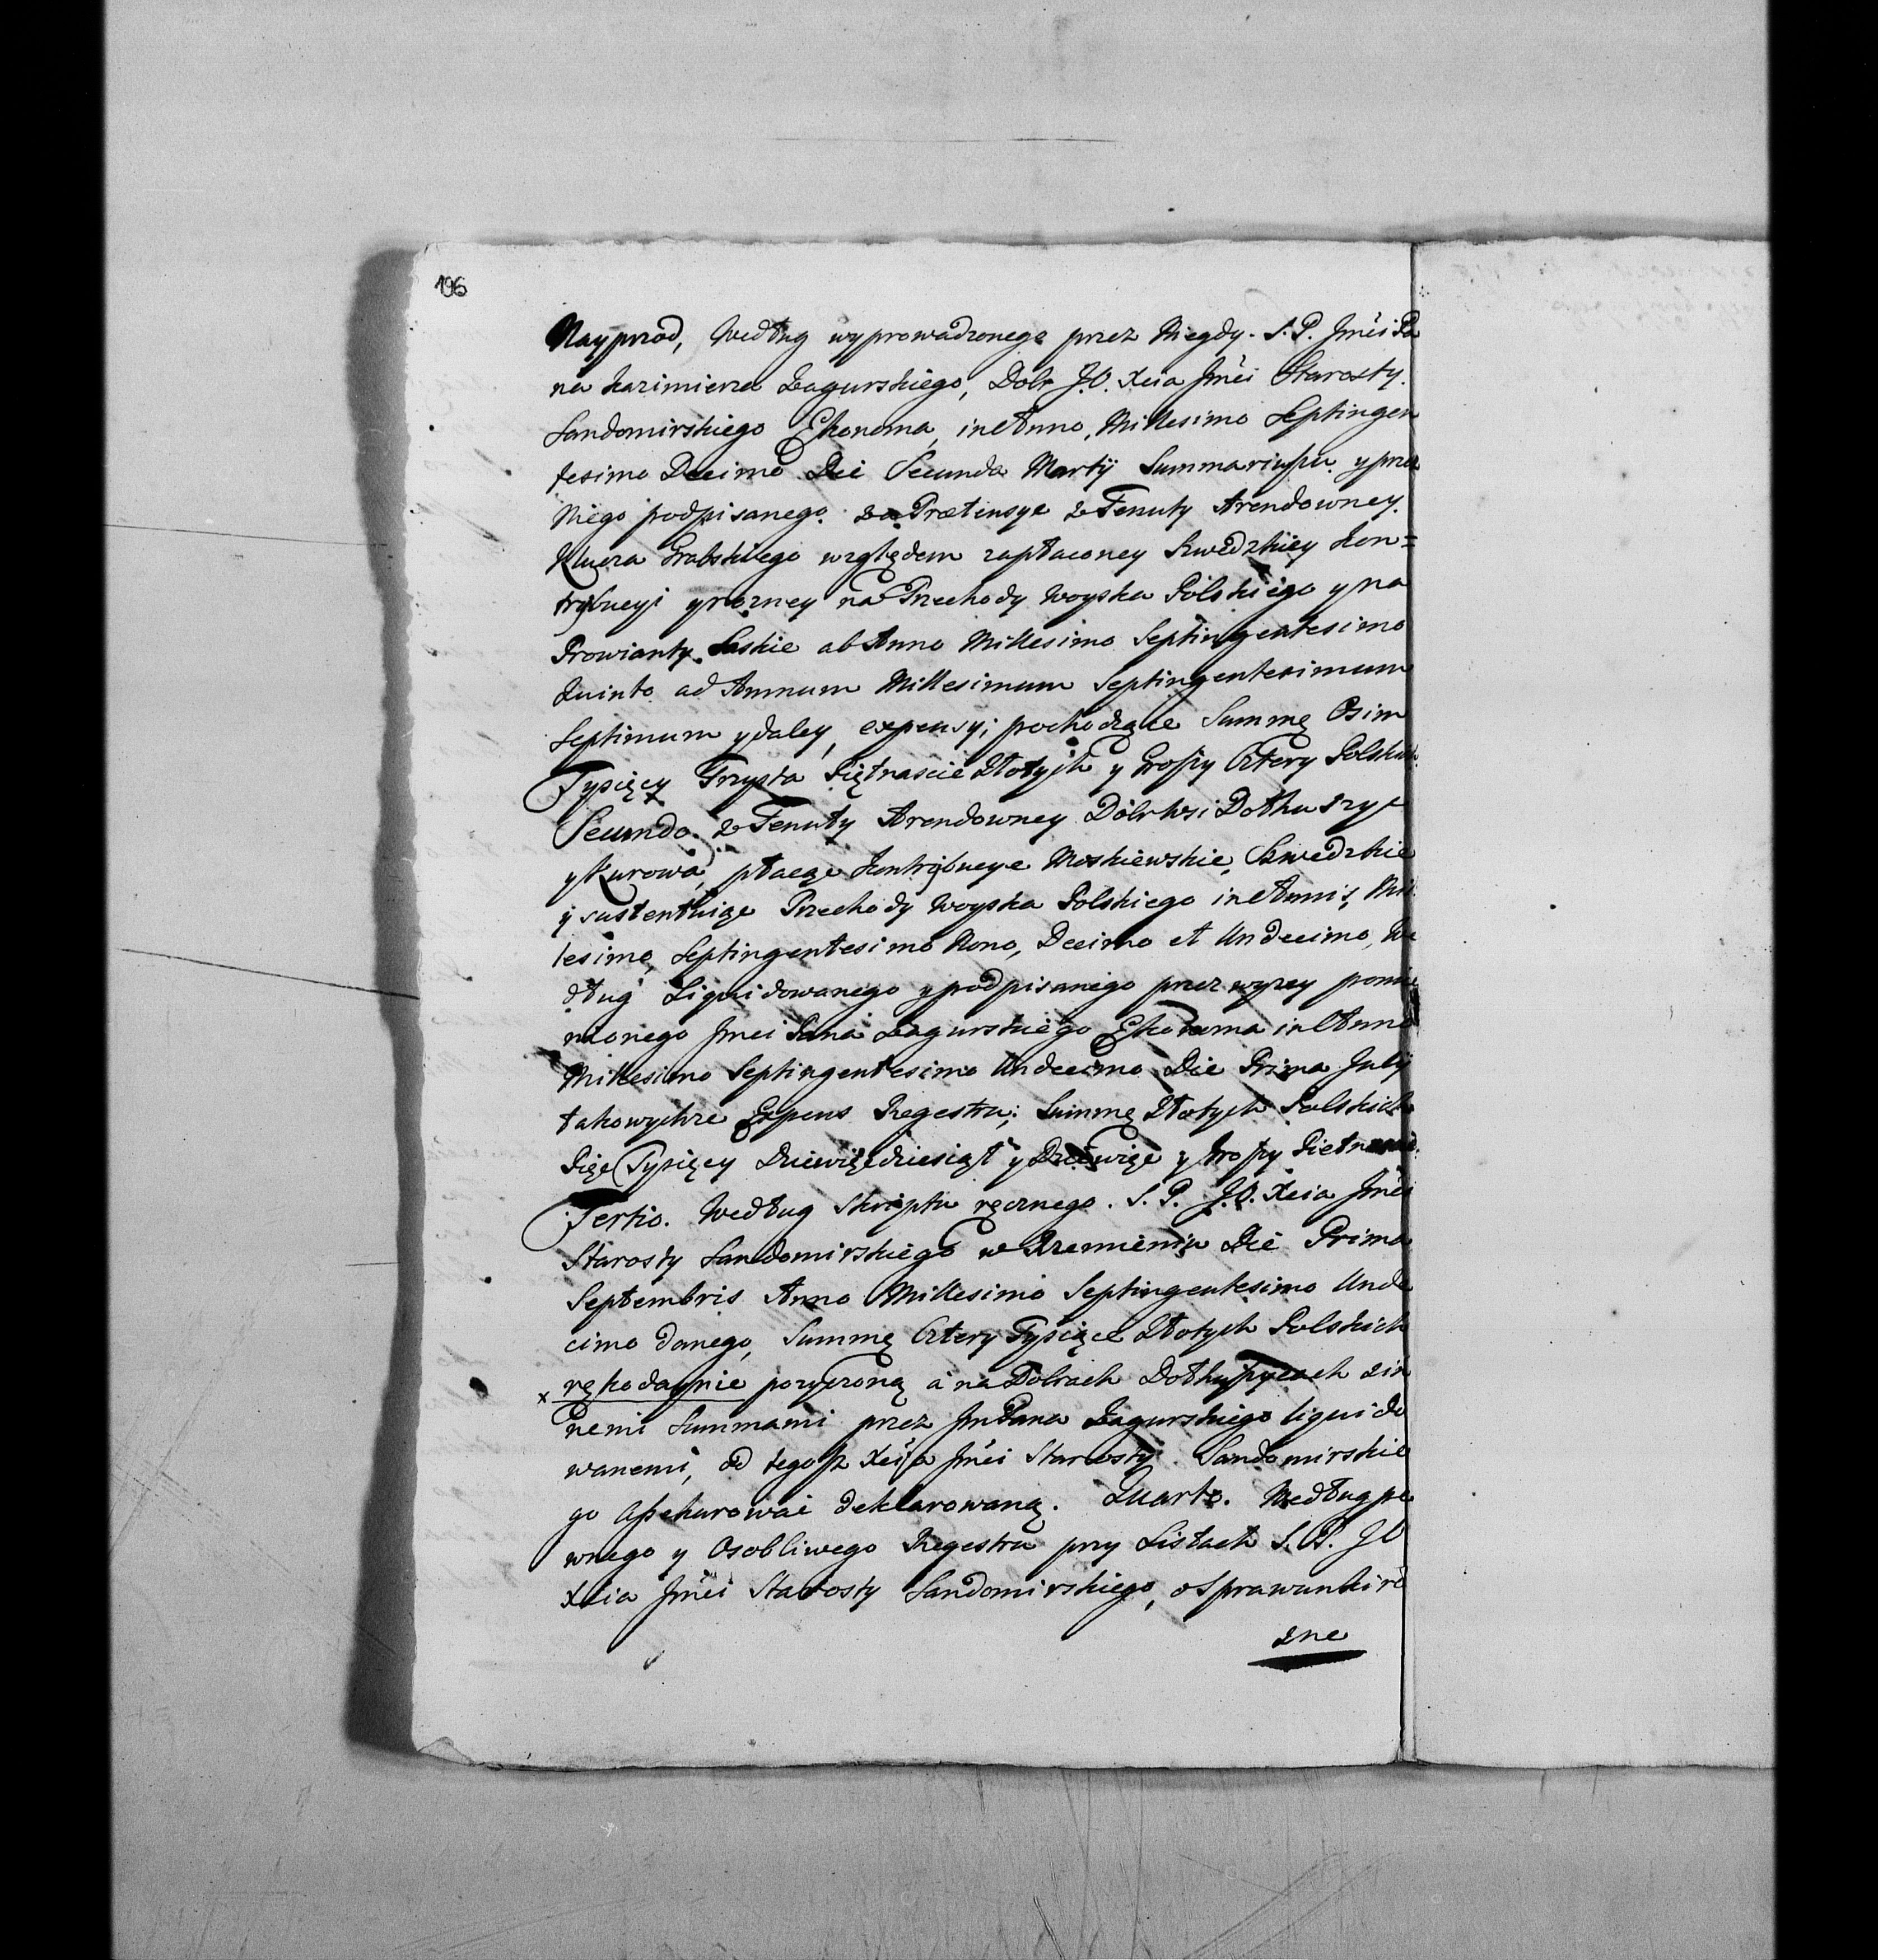 196
Nayprzod, Według wyprowadzonego przez Niegdy. S. P. Jmći Pa
na Kazimierza Zagurskiego, Dobr J.O. Xcia Jmći Starosty.
Sandomirskiego Ekonoma, in Anno, Millesimo Septingen
tesimo Decimo Die Secunda Martÿ Summariuszu y przez
Niego podpisanego. za Prætensye z Tenuty Arendowney.
Klucza Grabskiego względem zapłaconey Szwedzkiey Kon=
trybucyi y rozney na Przechody Woyska Polskiego y na
Prowianty Saskie ab Anno Millesimo Septingentesimo
Quinto ad Annum Millesimum Septingentesimum
Septimum y daley, expensy; pochodzące Summę Osim
Tysięcy Trzysta Piętnascie Złotych y Groszy Cztery Polskich.
Secundo. z Tenuty Arendowney Dobr Wsi Dothuszyc
y Kurowa, płacąc Kontrybucye Moskiewskie, Szwedzkie
y sustentuiąc Przechody Woyska Polskiego in Annis, Mil
lesimo, Septingentesimo Nono, Decimo et Undecimo, We
dług Liquidowanego y podpisanego przez wyzey pomie
nionego Jmci Pana Zagurskiego Ekonoma in Anno
Millesimo Septingentesimo Undecimo Die Prima Julÿ
takowychze Expens Regestru; Summę Złotych Polskich
Pięc Tysięcy Dziewięcdziesiąt y Dziewięc y Groszy Pietnascie.
Tertio. Według Skryptu ręcznego. S. P. J.O. Xcia Jmći
Starosty Sandomirskiego w Rzemieniu Die Prima
Septembris Anno Millesimo Septingentesimo Unde
cimo danego, Summę Cztery Tysiące Złotych Polskich
x rękodaynie pozyczoną a na Dobrach Dothuszycach z in
nemi Summami przez Jm Pana Zagurskiego liquido
wanemi, od tegosz Xcia Jmći Starosty Sandomirskie
go assekurowac deklarowaną. Quarto. Według pe
wnego y Osobliwego Regestru przy Listach S. P. J O
Xcia Jmći Starosty Sandomirskiego, o Sprawunki ro
zne